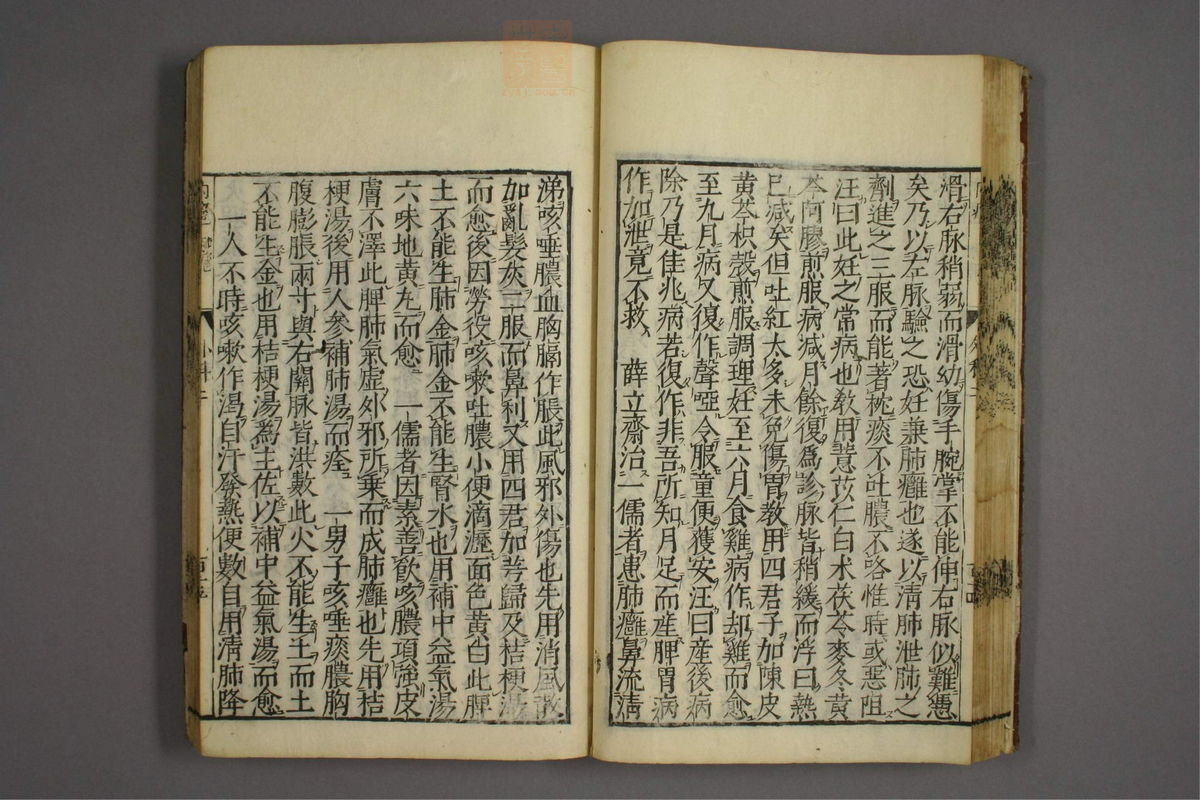 滑右脉稍弱而滑幼傷手腕掌不能伸右脉似難憑
矣乃以左脉驗之恐妊兼肺癰也遂以清肺泄肺之
劑進之三服而能著枕痰不吐膿不咯惟時或惡阻
汪曰此妊之常病也教用薏苡仁白术茯苓麥冬黃
芩阿膠煎服病減月餘復爲診脉皆稍緩而浮曰熱
已減矣但吐紅太多未免傷胃教用四君子加陳皮
黃芩枳殼煎服調理妊至六月食雞病作却雞而愈
至九月病又復作聲啞令服童便獲安汪曰産後病
除乃是佳兆病若復作非吾所知月足而産脾胃病
作加泄竟不救 薛立齋治一儒者患肺癰鼻流清
涕咳唾膿血胸膈作脹此風邪外傷也先用消風散
加亂髮灰二服而鼻利又用四君加芎歸及桔梗湯
而愈後因勞役咳嗽吐膿小便滴瀝面色黃白此脾
土不能生肺金肺金不能生腎水也用補中益氣湯
六味地黃丸而愈 一儒者因素善飲咳膿項強皮
膚不澤此脾肺氣虛外邪所乗而成肺癰也先用桔
梗湯後用人参補肺湯而痊 一男子咳唾痰膿胸
腹膨脹兩寸與右關脉皆洪數此火不能生土而土
不能生金也用桔梗湯爲主佐以補中益氣湯而愈
一人不時咳嗽作渴自汗發熱便數自用清肺降